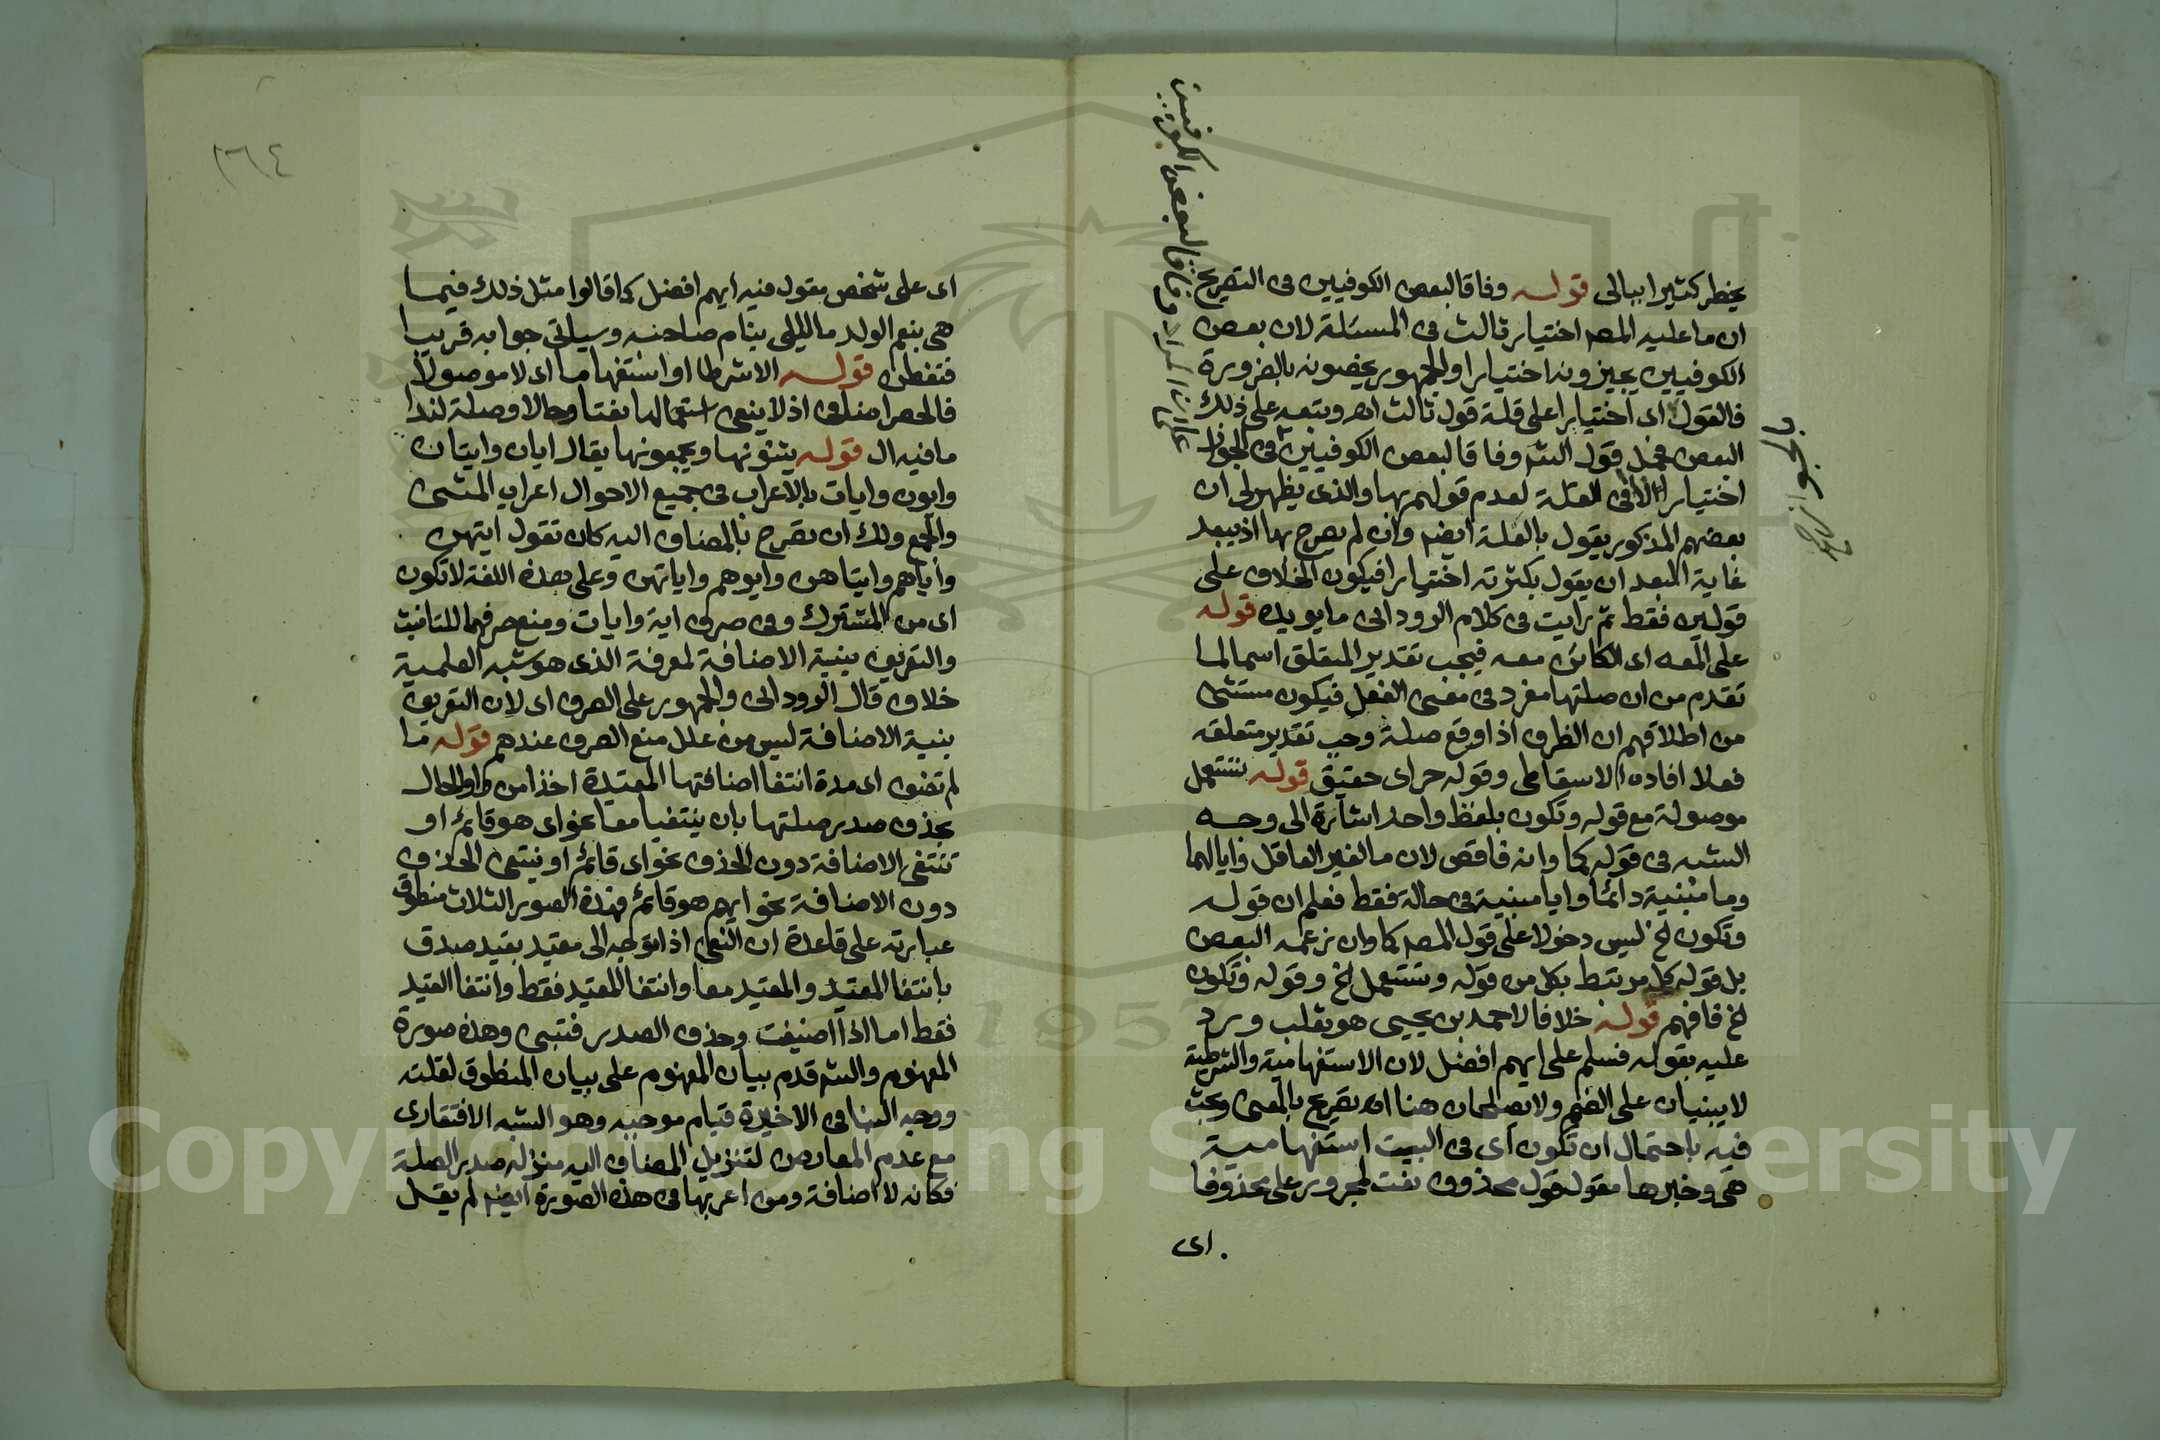 يخطر كثيرا ببالى قوله وفاقا لبعض الكوفيين فى التصريح
ان ما عليه المصـ اختيار ثالث فى المسئلة لان بعض
الكوفيين يجيزونه اختيارا والجمهور يخصونه بالضرورة
فالقول اى اختيارا على قلة قول ثالث اهـ ويتعين على ذلك
البعض فجمل قول الشـ وفاقا لبعض الكوفيين فى الجواز
اختيارا لا فى القلة لعدم قولهم بها والذى يظهر لى ان
بعضهم المذكور يقول بالقلة ايضـ وان لم يصرح بها اذ يبعد
غاية البعد ان يقول بكثرته اختيارا فيكون الخلاف على
قولين فقط ثم رايت فى كلام الرودانى ما يويده قوله
على المعه اى الكائن معه فيجب تقدير المتعلق اسما لما
تقدم من ان صلتها مفرد فى معنى الفعل فيكون مستثنى
من اطلاقهم ان الظرف اذا وقع صلة وجب تقدير متعلقه
فعلا افاده الاسقاطى وقوله حر اى حقيق قوله تستعمل
موصولة مع قوله وتكون بلفظ واحد اشارة الى وجه
الشبه فى قوله كما وانه ناقص لان ما لغير العاقل وايا لهما
وما مبنية دائما وايا مبنية فى حالة فقط فعلم ان قوله
وتكون لخ ليس دخولا على قول المصـ كما وان زعمه البعض
بل قوله كما مرتبط بكل من قوله وتستعمل لخ وقوله وتكون
لخ فافهم قوله خلافا لاحمد بن يحيى هو ثعلب ويرد
عليه بقوله فسلم على ايهم افضل لان الاستفهامية والشرطية
لا يبنيان على الضم ولا يصلحان هنا اهـ تصريح بالمعنى وبحث
فيه باحتمال ان تكون اى فى البيت استفهامية
هى وخبرها مقول قول محذوف نعت لمجرور على محذوفا
اى
على ان المراد وفاقا لبعض الكوفيين
فى الجواز صح
٢٦٤
اى على شخص مقول فيه ايهم افضل كما قالوا مثل ذلك فيما
هى بنعم الولد ما ليلى بنام صاحبه وسياتى جوابه قريبا
فتفطن قوله الا شرطا او استفهاما اى لا موصولا
فالحصر اضافى اذ لا ينفى استعمالها نعتا وحالا وصلة لندا
ما فيه ال قوله يثنونها ويجمعونها يقال ايان وايتان
وايون وايات بالاعراب فى جميع الاحوال اعراب المثنى
والجمع ولك ان تصرح بالمضاف اليه كان تقول ايتهن
واياهم وايتاهن وايوهم واياتهن وعلى هذه اللغة لا تكون
اى من المشترك وفى صرف اية وايات ومنع صرفهما للتانيث
والتعريف بنية الاضافة لمعرفة الذى هو شبه العلمية
خلاف قال الرودانى والجمهور على الصرف اى لان التعريف
بنية الاضافة ليس من علل منع الصرف عندهم قوله ما
لم تضف اى مدة انتفا اضافتها المقيدة اخذا من واو الحال
بحذف صدر صلتها بان ينتفيا معا نحو اى هو قائم او
تنتفى الاضافة دون الحذف نحو اى قائم او ينتفى الحذف
دون الاضافة نحو ايهم هو قائم فهذه الصور الثلاث منطوق
عبارته على قاعدة ان النفى اذا توجه الى مقيد بقيد صدق
بانتفا المقيد والقيد معا وانتفا المقيد فقط وانتفا القيد
فقط اما اذا اضيفت وحذف الصدر فتبنى وهذه صورة
المفهوم والشـ قدم بيان المفهوم على بيان المنطوق لقلته
ووجه البنا فى الاخيرة قيام موجبه وهو الشبه الافتقارى
مع عدم المعارض لتنزيل المضاف اليه منزلة صدر الصلة
فكانه لا اضافة ومن اعربها فى هذه الصورة ايضـ لم يقل
Copyright © King Saud University
1957